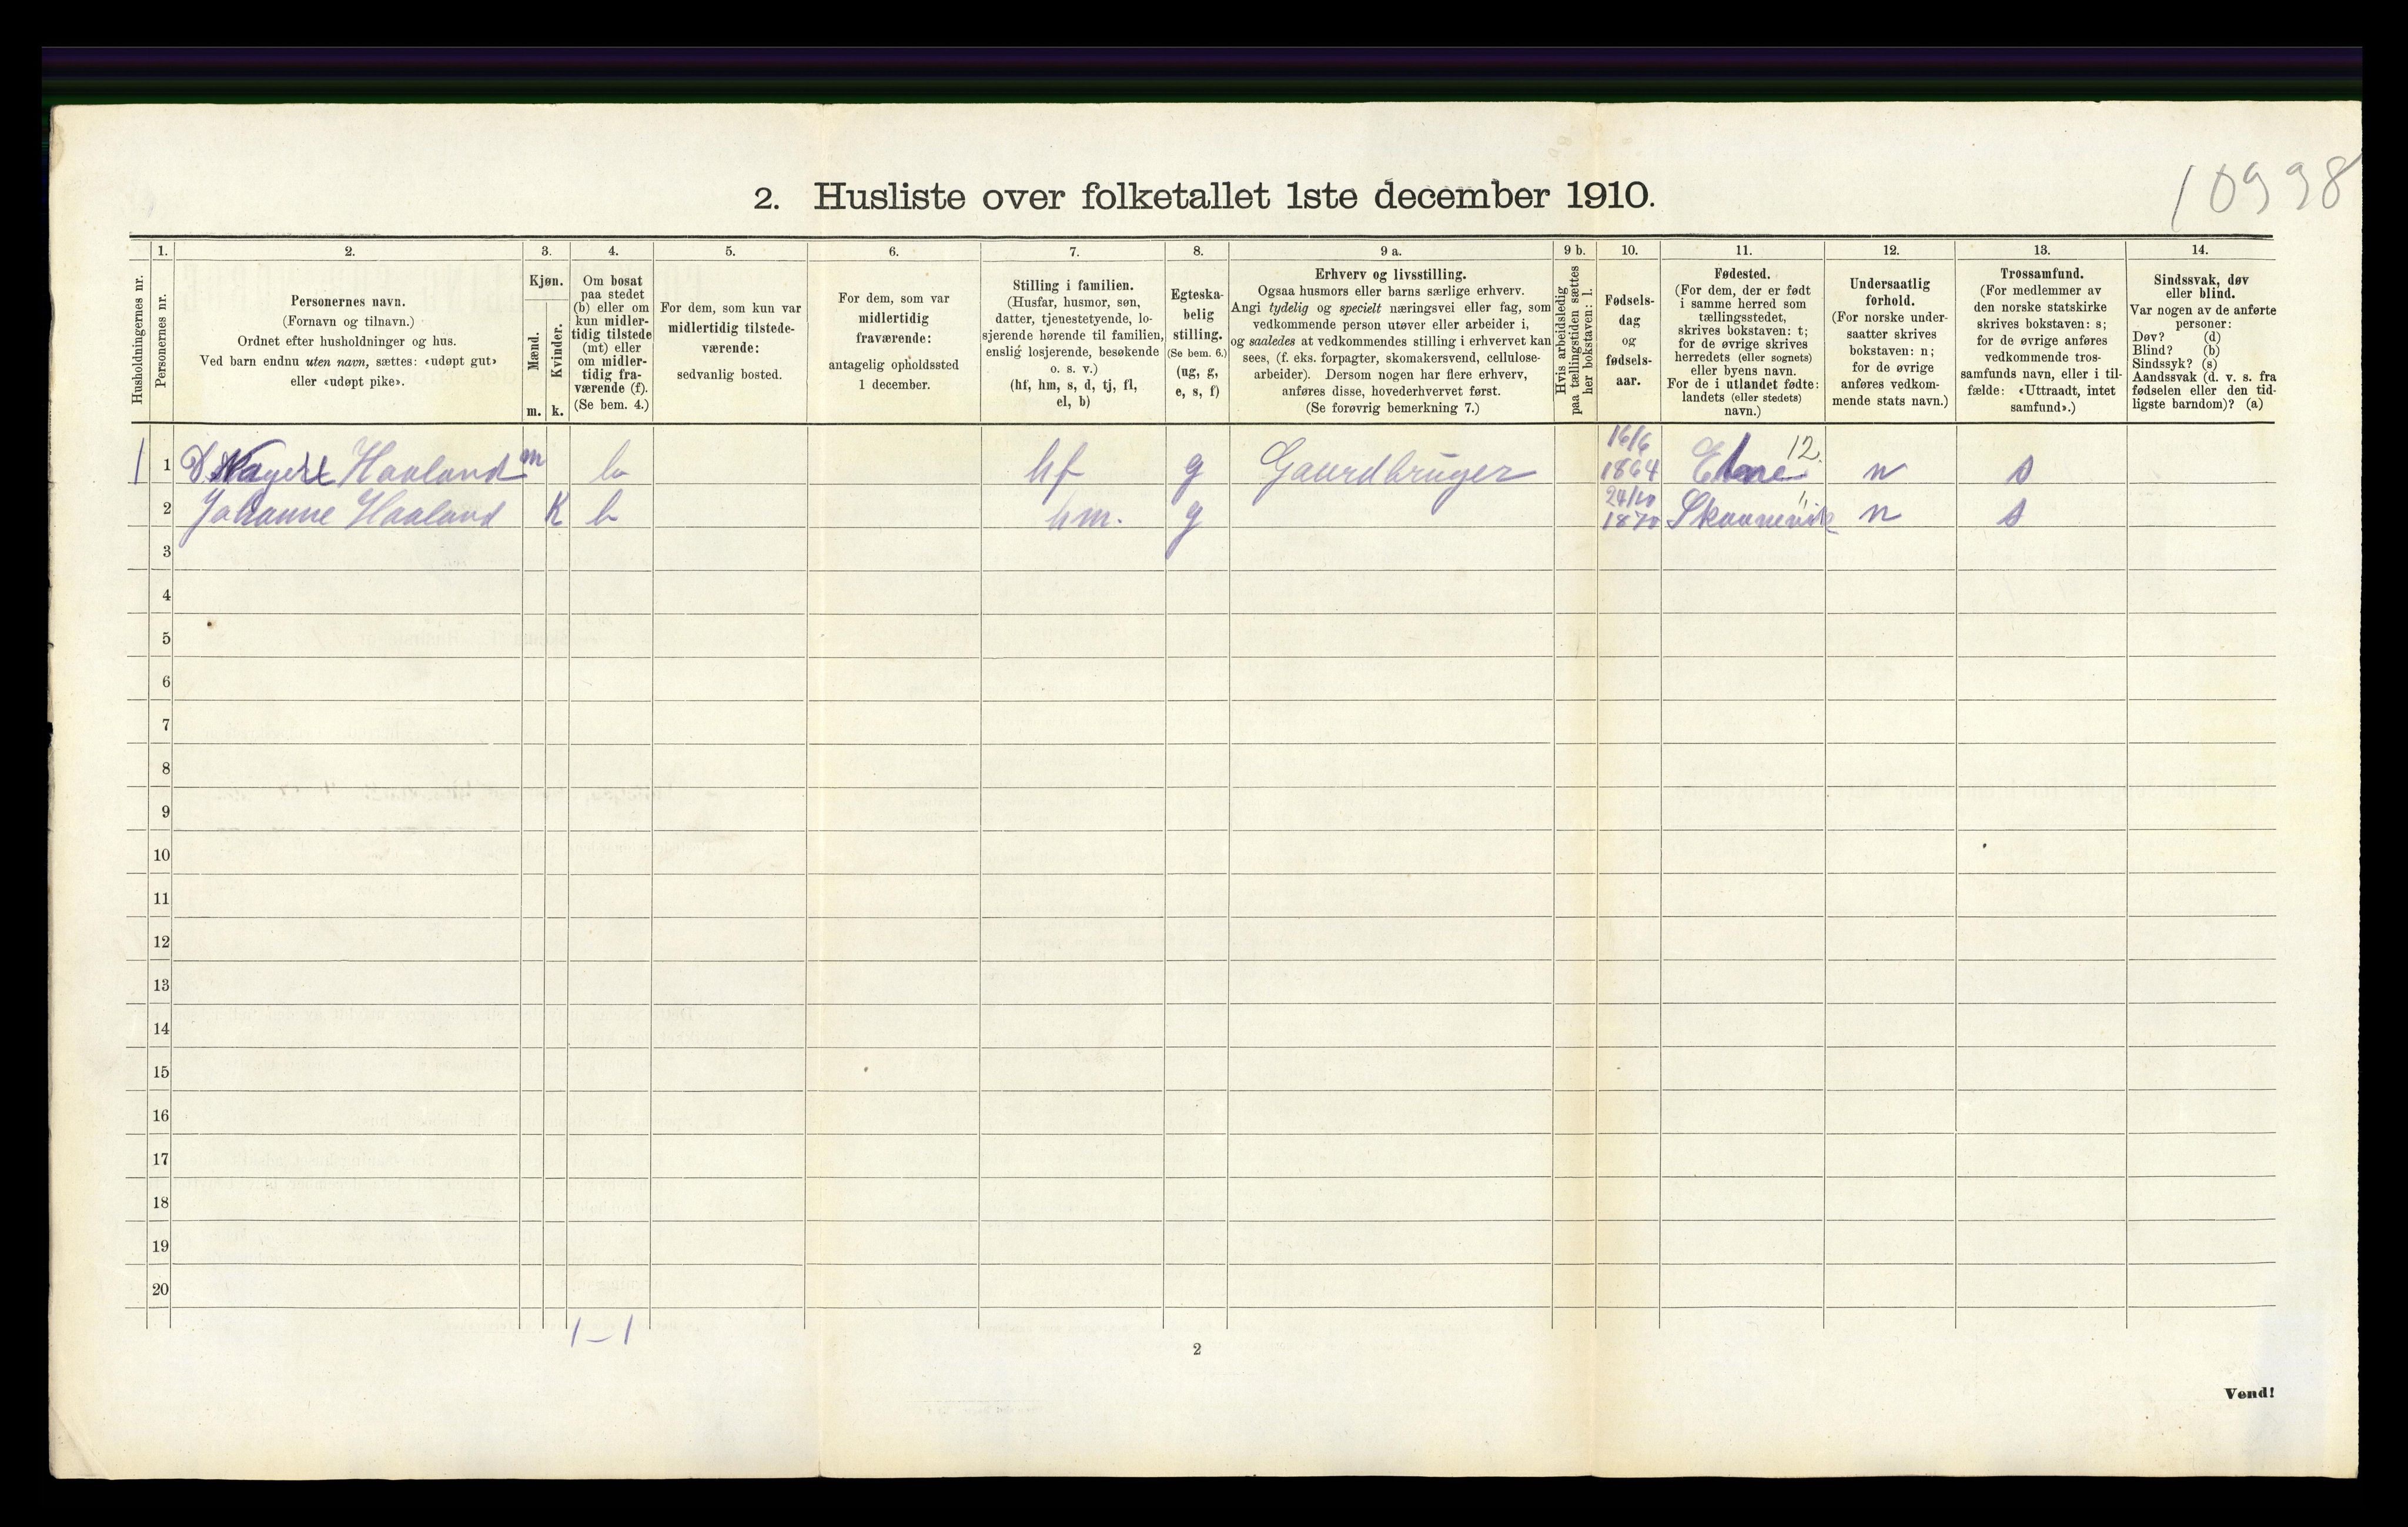 10998
2. Husliste over folketallet 1ste december 1910.
1. 2. 3. 4. 5. 6. 7. 8. 9 a. 9 b. 10. 11. 12. 13. 14.
Husholdningernes nr.
Personernes nr.
Personernes navn.
(Fornavn og tilnavn.)
Ordnet efter husholdninger og hus.
Ved barn endnu uten navn, sættes: «udøpt gut»
eller «udøpt pike».
Kjøn.
Mænd.
m.
Kvinder.
k.
Om bosat
paa stedet
(b) eller om
kun midler-
tidig tilstede
(mt) eller
om midler-
tidig fra-
værende (f).
(Se bem. 4.)
For dem, som kun var
midlertidig tilstede-
værende:
sedvanlig bosted.
For dem, som var
midlertidig
fraværende:
antagelig opholdssted
1 december.
Stilling i familien.
(Husfar, husmor, søn,
datter, tjenestetyende, lo-
sjerende hørende til familien,
enslig losjerende, besøkende
o. s. v.)
(hf, hm, s, d, tj, fl,
el, b)
Egteska-
belig
stilling.
(Se bem. 6.)
(ug, g,
e, s, f)
Erhverv og livsstilling.
Ogsaa husmors eller barns særlige erhverv.
Angi tydelig og specielt næringsvei eller fag, som
vedkommende person utøver eller arbeider i,
og saaledes at vedkommendes stilling i erhvervet kan
sees, (f. eks. forpagter, skomakersvend, cellulose-
arbeider). Dersom nogen har flere erhverv,
anføres disse, hovederhvervet først.
(Se forøvrig bemerkning 7.)
Hvis arbeidsledig
paa tællingstiden sættes
her bokstaven: l.
Fødsels-
dag
og
fødsels-
aar.
Fødested.
(For dem, der er født
i samme herred som
tællingsstedet,
skrives bokstaven: t;
for de øvrige skrives
herredets (eller sognets)
eller byens navn.
For de i utlandet fødte:
landets (eller stedets)
navn.)
Undersaatlig
forhold.
(For norske under-
saatter skrives
bokstaven: n;
for de øvrige
anføres vedkom-
mende stats navn.)
Trossamfund.
(For medlemmer av
den norske statskirke
skrives bokstaven: s;
for de øvrige anføres
vedkommende tros-
samfunds navn, eller i til-
fælde: «Uttraadt, intet
samfund».)
Sindssvak, døv
eller blind.
Var nogen av de anførte
personer:
Døv? (d)
Blind? (b)
Sindssyk? (s)
Aandssvak (d. v. s. fra
fødselen eller den tid-
ligste barndom)? (a)
1 1 Haaland m b hf g Gaurdbruger 16/6 1864 12. n s
2 Johanne Haaland K b hm. g 24/10 1870 Skaanevik " n s
3
4
5
6
7
8
9
10
11
12
13
14
15
16
17
18
19
20
1–1
2
Vend!